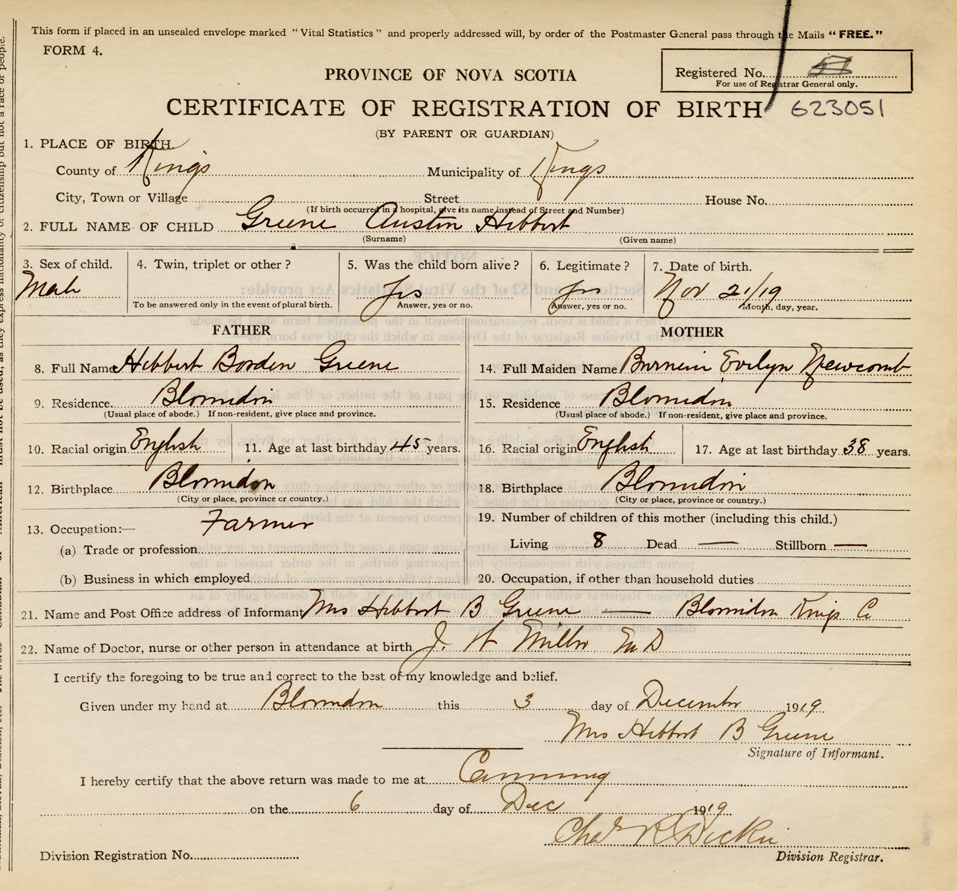 This form if placed in an unsealed envelope marked "Vital Statistics" and properly addressed will, by order of the Postmaster General pass through the Mails "FREE."
FORM 4.
PROVINCE OF NOVA SCOTIA
Registered No.
For use of Registrar General only.
CERTIFICATE OF REGISTRATION OF BIRTH
623051
(BY PARENT OR GUARDIAN)
1. PLACE OF BIRTH.
County of Kings Municipality of Kings
City, Town or Village Street House No.
(If birth occurred in a hospital, give its name instead of Street and Number)
2. FULL NAME OF CHILD Greene Austin Hibbert
(Surname) (Given name)
3. Sex of child. 4. Twin, triplet or other? 5. Was the child born alive? 6. Legitimate? 7. Date of birth.
Male Yes Yes Nov 21/19
To be answered only in the event of plural birth. Answer, yes or no. Answer, yes or no. Month, day, year.
FATHER MOTHER
8. Full Name Hibbert Borden Greene 14. Full Maiden Name Evelyn Newcomb
9. Residence. Blomidon 15. Residence Blomidon
(Usual place of abode.) If non-resident, give place and province. (Usual place of abode.) If non-resident, give place and province.
10. Racial origin English 11. Age at last birthday 45 years. 16. Racial origin English 17. Age at last birthday 38 years.
12. Birthplace Blomidon 18. Birthplace Blomidon
(City or place, province or country.) (City or place, province or country.)
13. Occupation:— Farmer 19. Number of children of this mother (including this child.)
(a) Trade or profession Living 8 Dead — Stillborn —
(b) Business in which employed 20. Occupation, if other than household duties
21. Name and Post Office address of Informant Mrs Hibbert B Greene — Blomidon Kings Co
22. Name of Doctor, nurse or other person in attendance at birth J. W. Miller M D
I certify the foregoing to be true and correct to the best of my knowledge and belief.
Given under my hand at Blomidon this 3 day of December 1919
Mrs Hibbert B Greene
Signature of Informant.
I hereby certify that the above return was made to me at Canning
on the 6 day of Dec 1919
Chas R Dickie
Division Registration No. Division Registrar.